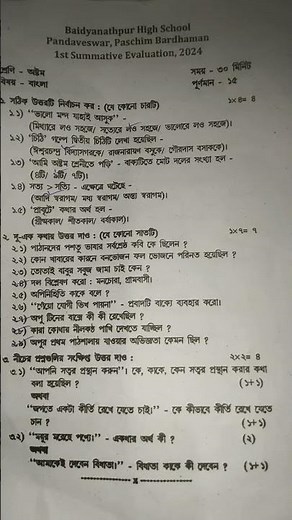 Baidyanathpur High School
Pandaveswar, Paschim Bardhaman
1st Summative Evaluation, 2024
শ্রেণি - অষ্টম সময় - ৩০ মিনিট
বিষয় - বাংলা পূর্ণমান - ১৫
১. সঠিক উত্তরটি নির্বাচন কর : (যে কোনো চারটি) ১×৪= ৪
১.১) "ভালো মন্দ যাহাই আসুক" -
(মিথ্যারে লও সহজে/ সত্যেরে লও সহজে/ ভালোরে লও সহজে)।
১.২) 'চিঠি' গল্পে দ্বিতীয় চিঠিটি লেখা হয়েছিল -
(ঈশ্বরচন্দ্র বিদ্যাসাগরকে/ রাজনারায়ণ বসুকে/ গৌরদাস বসাককে)।
১.৩) 'আমি অষ্টম শ্রেণীতে পড়ি' - বাক্যটিতে মোট দলের সংখ্যা হল -
(৮টি/ ৯টি/ ৭টি)।
১.৪) সত্য > সত্যি - এক্ষেত্রে ঘটেছে -
(আদি স্বরাগম/ মধ্য স্বরাগম/ অন্ত্য স্বরাগম)।
১.৫) 'প্রাবৃট' কথার অর্থ হল -
(গ্রীষ্মকাল/ শীতকাল/ বর্ষাকাল)।
২. দু-এক কথায় উত্তর দাও : (যে কোনো সাতটি) ১×৭= ৭
২.১) পাঠানদের পশতু ভাষার সর্বশ্রেষ্ঠ কবি কে ছিলেন ?
২.২) কোন খাবারের কারণে বনভোজন ফল ভোজনে পরিনত হয়েছিল ?
২.৩) তোতাই বাবুর সবুজ জামা চাই কেন ?
২.৪) দল বিশ্লেষণ করো : মনচোরা, গ্রামবাসী।
২.৫) অপিনিহিতি কাকে বলে ?
২.৬) "গেঁয়ো যোগী ভিখ পায়না" - প্রবাদটি বাক্যে ব্যবহার করো।
২.৭) অপু টিনের বাক্সে কী কী রেখেছিল ?
২.৮) কারা কোথায় নীলকণ্ঠ পাখি দেখতে যাচ্ছিল ?
২.৯) অপুর প্রথম পাঠশালায় যাওয়ার অভিজ্ঞতা কেমন ছিল ?
৩. নীচের প্রশ্নগুলির সংক্ষিপ্ত উত্তর দাও : ২×২= ৪
৩.১) "আপনি সত্বর প্রস্থান করুন"। কে, কাকে, কেন সত্বর প্রস্থান করার কথা
বলা হয়েছিল ? (১+১)
অথবা
"জগতে একটা কীর্তি রেখে যেতে চাই।" - কে কীভাবে কীর্তি রেখে যেতে
চান ? (১+১)
৩.২) "ময়ূর মরেছে পণ্যে।" - একথার অর্থ কী ? (২)
অথবা
"আমাকেই দেবেন বিধাতা।" - বিধাতা কাকে কী দেবেন ? (১+১)